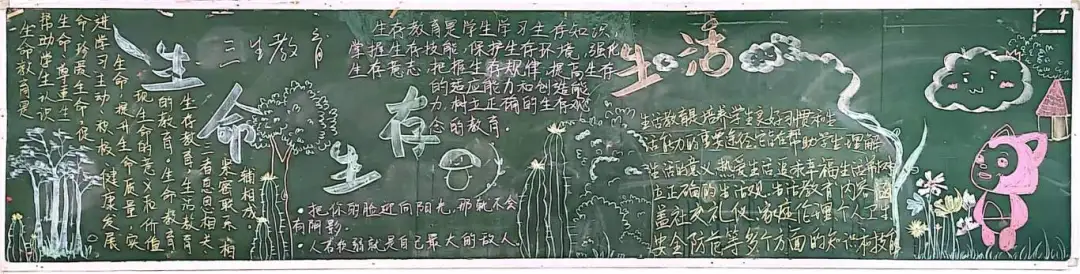 三生教育
生命
生命教育是
帮助学生认识
生命、尊重生
命、珍爱生命,促
进学习主动、积极、健康发展
生命,提升生命质量,实
现生命的意义和价值
的教育。生命教育,
生存教育,生活教育
三者息息相关
紧密联系,相
辅相成。
生存
生存教育是学生学习生存知识,
掌握生存技能,保护生存环境,强化
生存意志,把握生存规律,提高生存
的适应能力和创造能
力,树立正确的生存观
念的教育。
•把你的脸迎向阳光,那就不会
有阴影。
•人若软弱就是自己最大的敌人
生活
生活教育是培养学生良好习惯和生
活能力的重要途径它旨在帮助学生理解
生活的意义,热爱生活,追求幸福生活,帮
立正确的生活观,生活教育内容
盖社交礼仪、家庭伦理个人卫生
安全防范等多个方面的知识和技能